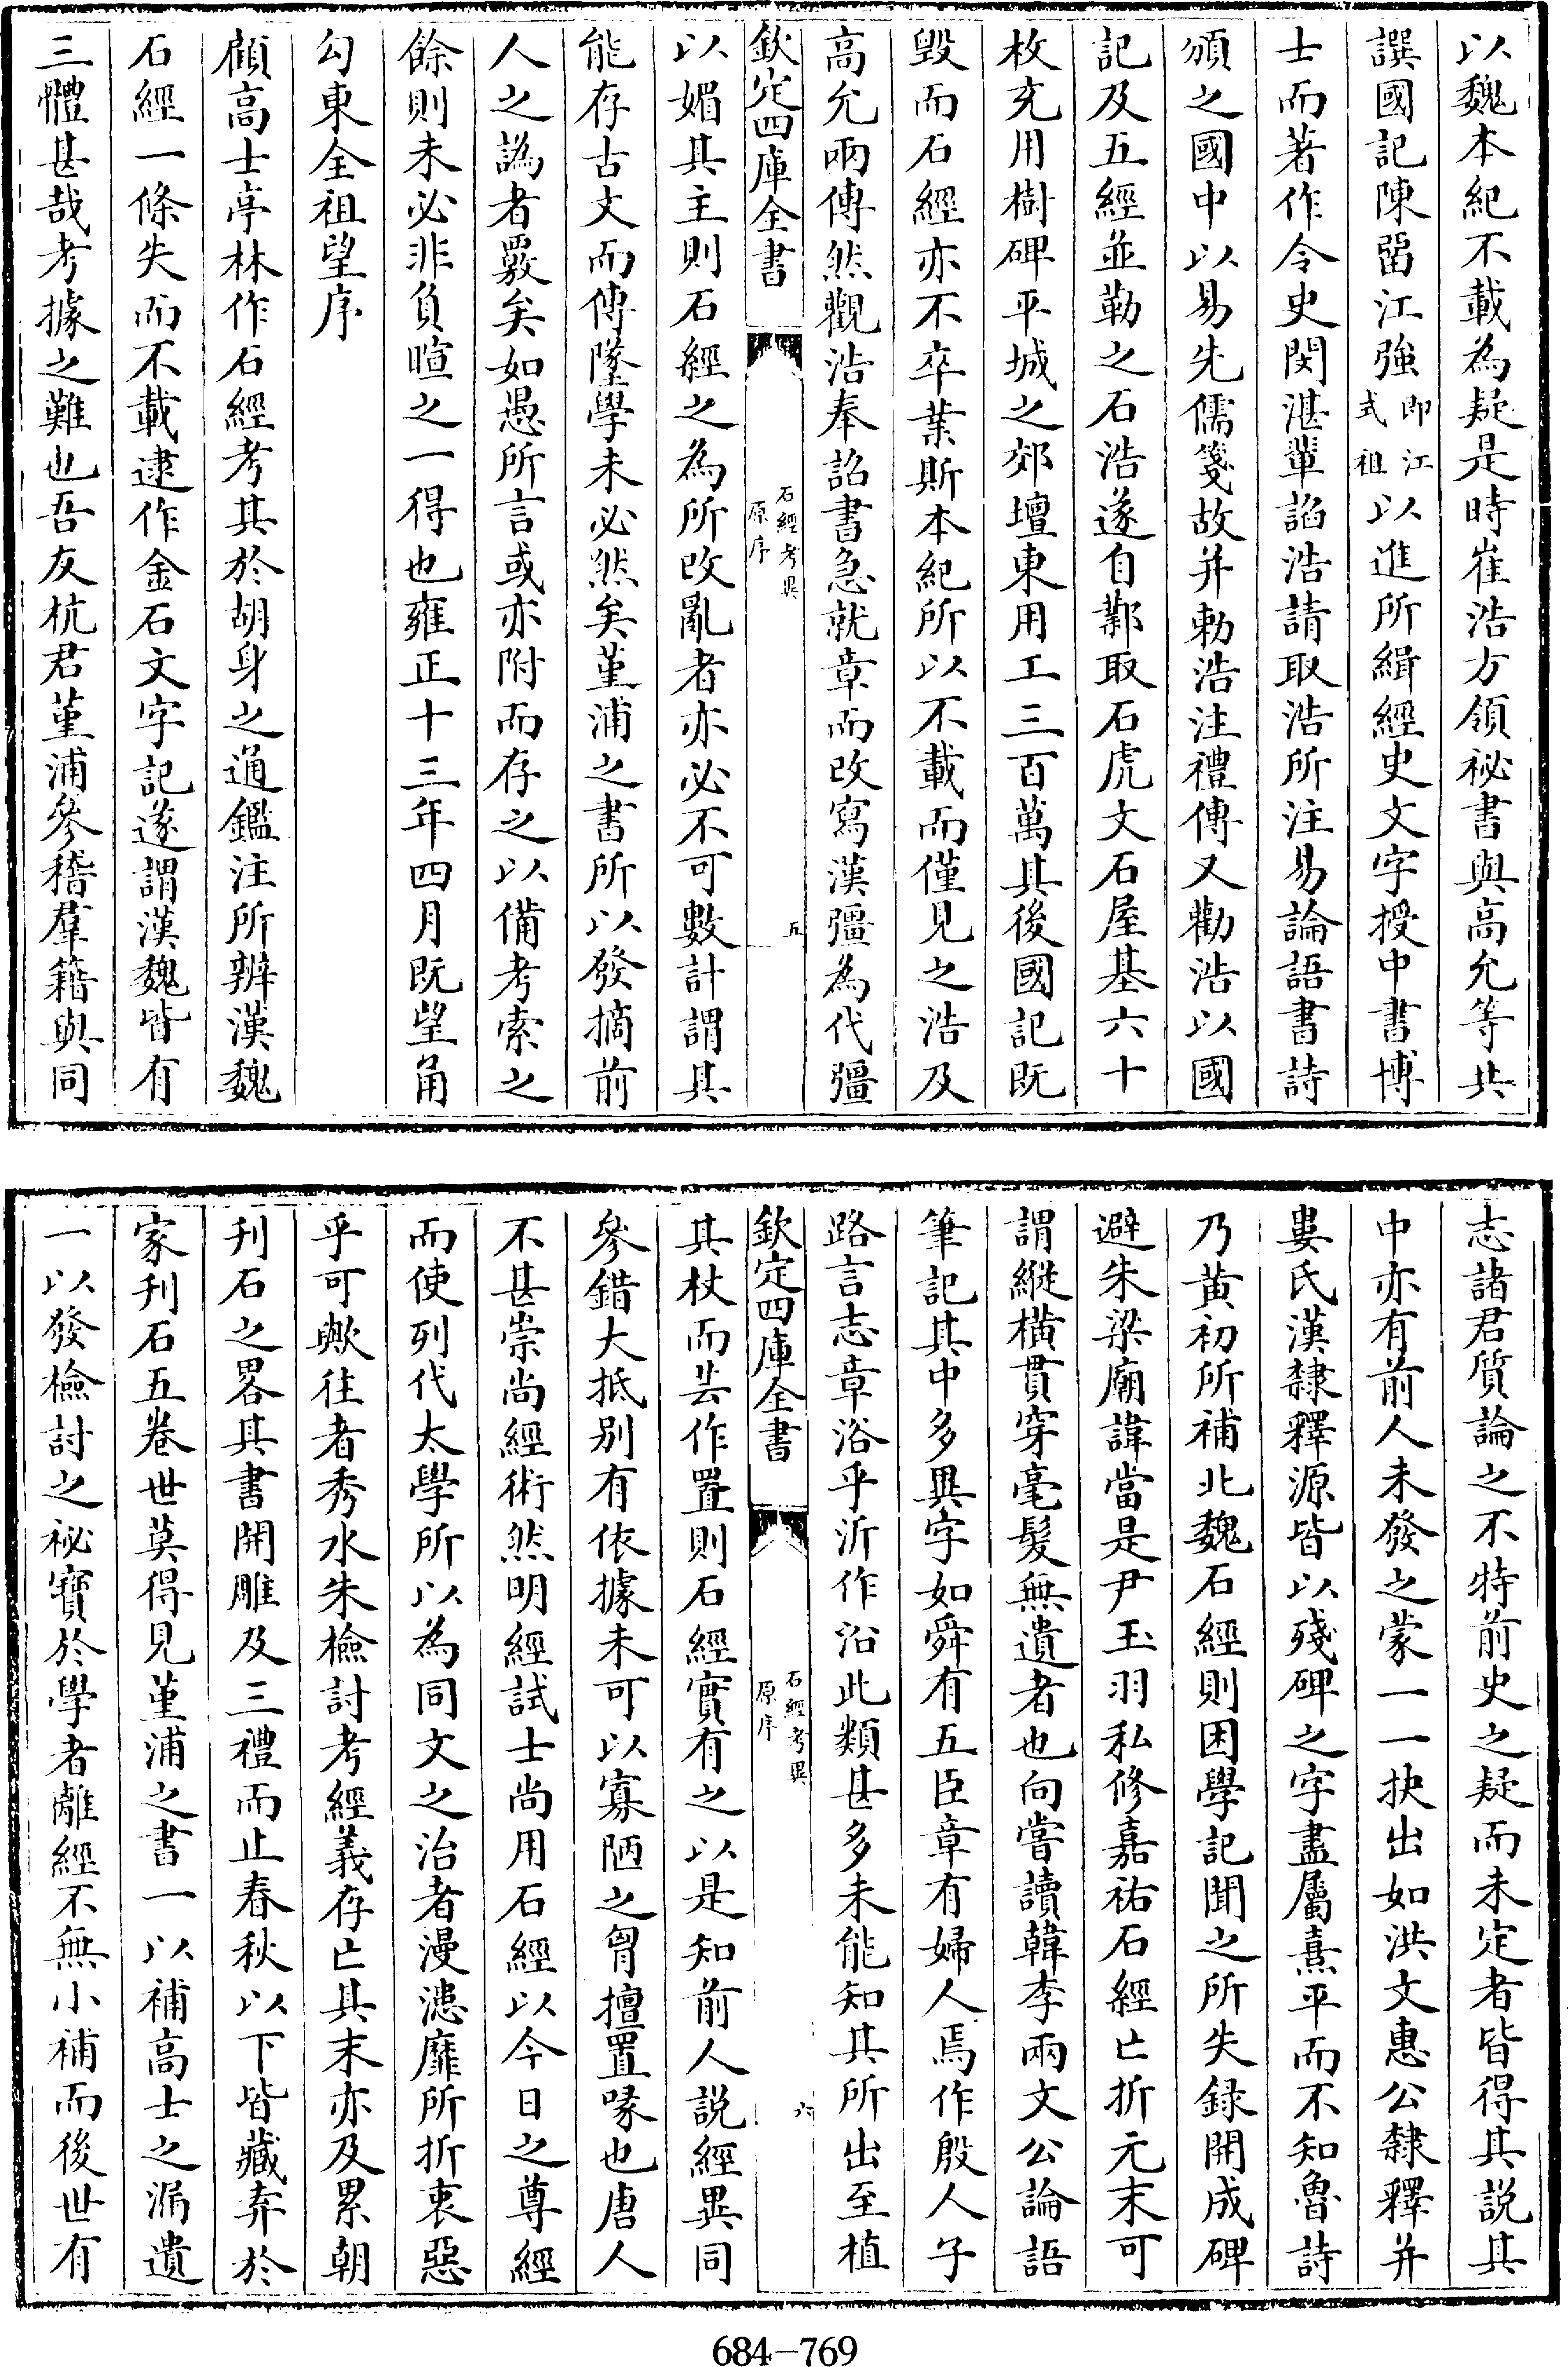 以魏本紀不載為疑是時崔浩方領祕書與高允等共
譔國記陳畱江強即江式祖以進所緝經史文字授中書博
士而著作令史閔湛輩諂浩請取浩所注易論語書詩
頒之國中以易先儒箋故并勅浩注禮傳又勸浩以國
記及五經並勒之石浩遂自鄴取石虎文石屋基六十
枚充用樹碑平城之郊壇東用工三百萬其後國記既
毀而石經亦不卒業斯本紀所以不載而僅見之浩及
高允兩傳然觀浩奉詔書急就章而改寫漢彊為代彊
欽定四庫全書
石經考異
原序
五
以媚其主則石經之為所改亂者亦必不可數計謂其
能存古文而傳墜學未必然矣堇浦之書所以發摘前
人之譌者覈矣如愚所言或亦附而存之以備考索之
餘則未必非負暄之一得也雍正十三年四月既望甬
勾東全祖望序
顧高士亭林作石經考其於胡身之通鑑注所辨漢魏
石經一條失而不載逮作金石文字記遂謂漢魏皆有
三體甚哉考據之難也吾友杭君堇浦參稽羣籍與同
志諸君質論之不特前史之疑而未定者皆得其説其
中亦有前人未發之蒙一一抉出如洪文惠公隸釋并
婁氏漢隸釋源皆以殘碑之字盡屬熹平而不知魯詩
乃黄初所補北魏石經則困學記聞之所失録開成碑
避朱梁廟諱當是尹玉羽私修嘉祐石經亡折元末可
謂縱橫貫穿毫髮無遺者也向嘗讀韓李兩文公論語
筆記其中多異字如舜有五臣章有婦人焉作殷人子
路言志章浴乎沂作沿此類甚多未能知其所出至植
欽定四庫全書
石經考異
原序
六
其杖而芸作置則石經實有之以是知前人説經異同
參錯大抵别有依據未可以寡陋之胷擅置喙也唐人
不甚崇尚經術然明經試士尚用石經以今日之尊經
而使列代太學所以為同文之治者漫漶靡所折衷惡
乎可歟往者秀水朱檢討考經義存亡其末亦及累朝
刋石之畧其書開雕及三禮而止春秋以下皆藏弆於
家刋石五卷世莫得見堇浦之書一以補高士之漏遺
一以發檢討之祕寶於學者離經不無小補而後世有
684-769